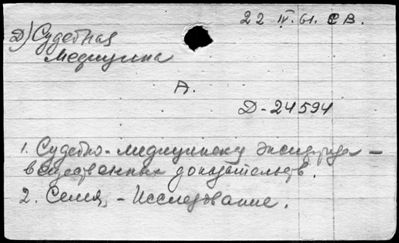 22 IV. 61. СВ.
Д) Судебная
медицина
А.
Д-24594
1. Судебно-медицинская экспертиза -
вещественных доказательств.
2. Семя, - Исследование.